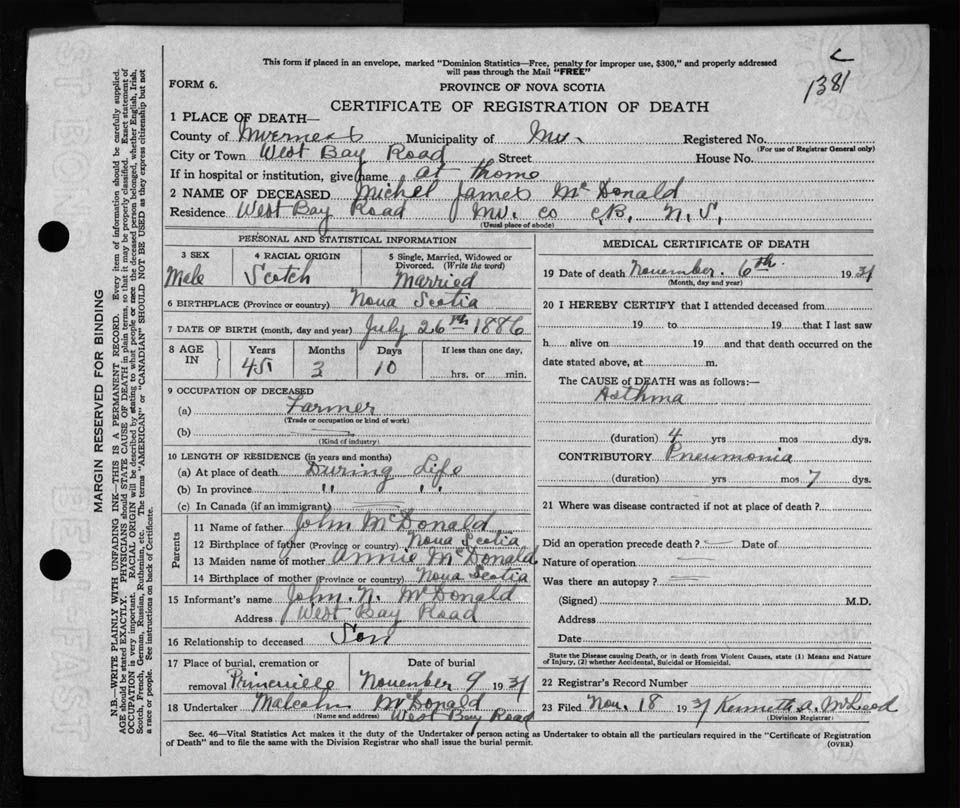 This form if placed in an envelope, marked "Dominion Statistics—Free, penalty for improper use, $300," and properly addressed
will pass through the Mail "FREE"
FORM 6.
PROVINCE OF NOVA SCOTIA
1381
CERTIFICATE OF REGISTRATION OF DEATH
1 PLACE OF DEATH—
County of Inverness Municipality of Inv. Registered No.
(For use of Registrar General only)
City or Town West Bay Road Street House No.
If in hospital or institution, give name at
2 NAME OF DECEASED Michel James McDonald
Residence West Bay Road Inv. Co C.B. N.S.
(Usual place of abode)
PERSONAL AND STATISTICAL INFORMATION
3 SEX 4 RACIAL ORIGIN 5 Single, Married, Widowed or
Divorced. (Write the word)
Male Scotch Married
6 BIRTHPLACE (Province or country) Nova Scotia
7 DATE OF BIRTH (month, day and year) July 26th 1886
8 AGE IN Years Months Days If less than one day,
45 3 10 hrs. or min.
9 OCCUPATION OF DECEASED
(a) Farmer
(Trade or occupation or kind of work)
(b)
(Kind of industry)
10 LENGTH OF RESIDENCE (in years and months)
(a) At place of death During Life
(b) In province " "
(c) In Canada (if an immigrant)
Parents
11 Name of father John McDonald
12 Birthplace of father (Province or country) Nova Scotia
13 Maiden name of mother Annie McDonald
14 Birthplace of mother (Province or country) Nova Scotia
15 Informant's name John. N. McDonald
Address West Bay Road
16 Relationship to deceased Son
17 Place of burial, cremation or Date of burial
removal Princeville November 9 1931
18 Undertaker Malcolm McDonald
(Name and address) West Bay Road
MEDICAL CERTIFICATE OF DEATH
19 Date of death November. 6th 1931
(Month, day and year)
20 I HEREBY CERTIFY that I attended deceased from
19 to 19 that I last saw
h alive on 19 and that death occurred on the
date stated above, at m.
The CAUSE of DEATH was as follows:—
Asthma
(duration) 4 yrs mos dys.
CONTRIBUTORY Pneumonia
(duration) yrs mos 7 dys.
21 Where was disease contracted if not at place of death?
Did an operation precede death? Date of
Nature of operation
Was there an autopsy?
(Signed) M.D.
Address
Date
State the Disease causing Death, or in death from Violent Causes, state (1) Means and Nature
of Injury, (2) whether Accidental, Suicidal or Homicidal.
22 Registrar's Record Number
23 Filed Nov. 18 1931 Kenneth A. McLeod
(Division Registrar)
Sec. 46—Vital Statistics Act makes it the duty of the Undertaker or person acting as Undertaker to obtain all the particulars required in the "Certificate of Registration
of Death" and to file the same with the Division Registrar who shall issue the burial permit.
(OVER)
MARGIN RESERVED FOR BINDING
N.B.—WRITE PLAINLY WITH UNFADING INK—THIS IS A PERMANENT RECORD. Every item of information should be carefully supplied.
AGE should be stated EXACTLY. PHYSICIANS should STATE CAUSE OF DEATH in plain terms, so that it may be properly classified. Exact statement of
OCCUPATION is very important. RACIAL ORIGIN will be described by stating to what people or race the deceased person belonged, whether English, Irish,
Scotch, French, German, Russian, Ruthenian, etc. The terms "AMERICAN" or "CANADIAN" SHOULD NOT BE USED as they express citizenship but not
a race or people. See instructions on back of Certificate.